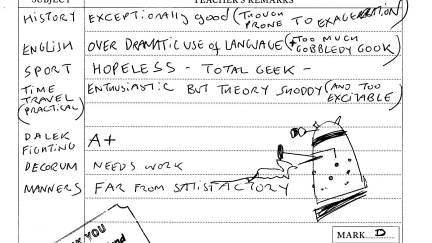 SUBJECT TEACHER'S REMARKS
HISTORY EXCEPTIONALLY good (THOUGH
PRONE TO EXAGERATION)
ENGLISH OVER DRAMATIC USE of LANGUAGE (+TOO MUCH
GOBBLEDY GOOK)
SPORT HOPELESS - TOTAL GEEK -
TIME ENTHUSIASTIC BUT THEORY SHODDY (AND TOO
TRAVEL EXCITABLE)
(PRACTICAL)
DALEK
FIGHTING A+
DECORUM NEEDS WORK
MANNERS FAR FROM SATISFACTORY
YOU
MARK D